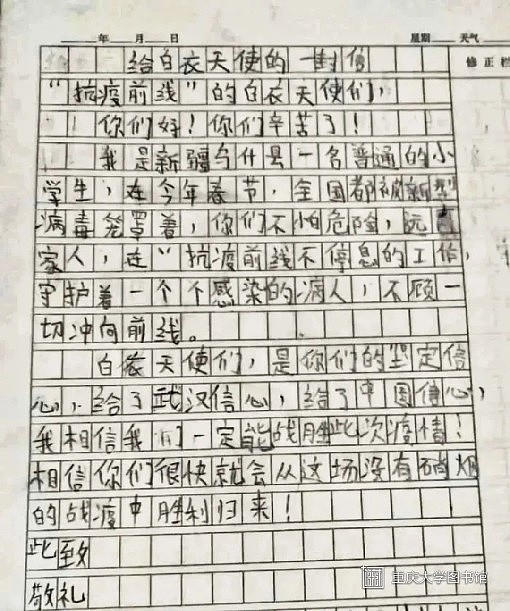 年 月 日 星期 天气
修正栏
给白衣天使的一封信
“抗疫前线”的白衣天使们，
你们好！你们辛苦了！
我是新疆乌什县一名普通的小
学生，在今年春节，全国都被新型
病毒笼罩着，你们不怕危险，远离
家人，在“抗疫前线不停息的工作，
守护着一个个感染的病人，不顾一
切冲向前线。
白衣天使们，是你们的坚定信
心，给了武汉信心，给了中国信心，
我相信我们一定能战胜此次疫情！
相信你们很快就会从这场没有硝烟
的战疫中胜利归来！
此致
敬礼
重庆大学图书馆